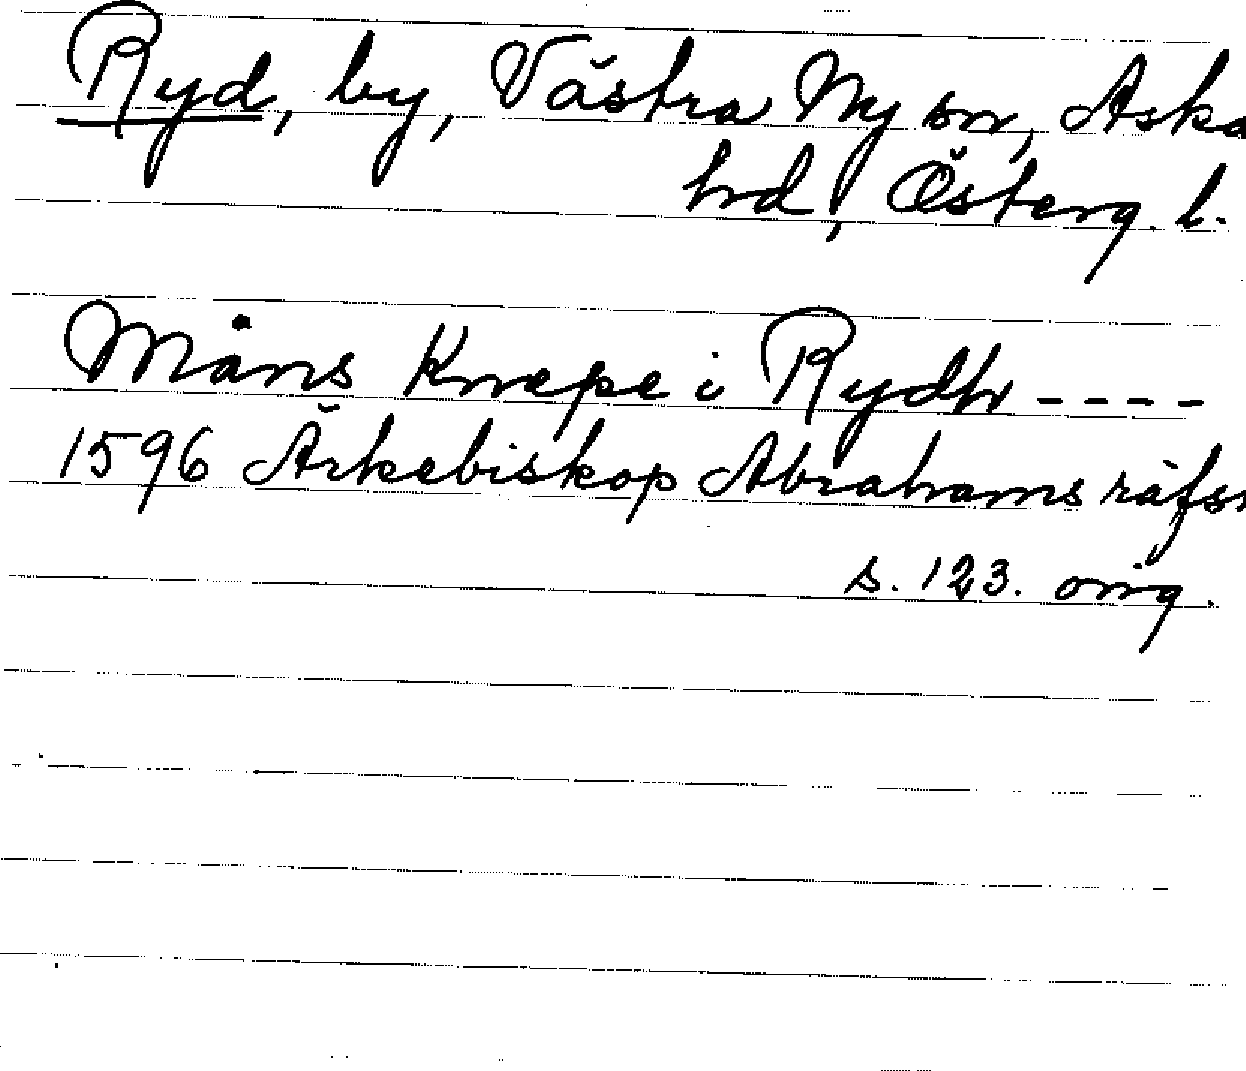 Ryd, by, Västra Ny sn, Aska
hd, Österg. l.
Måns Knepe i Rydh ----
1596 Ärkebiskop Abrahams räfs
s. 123. orig.